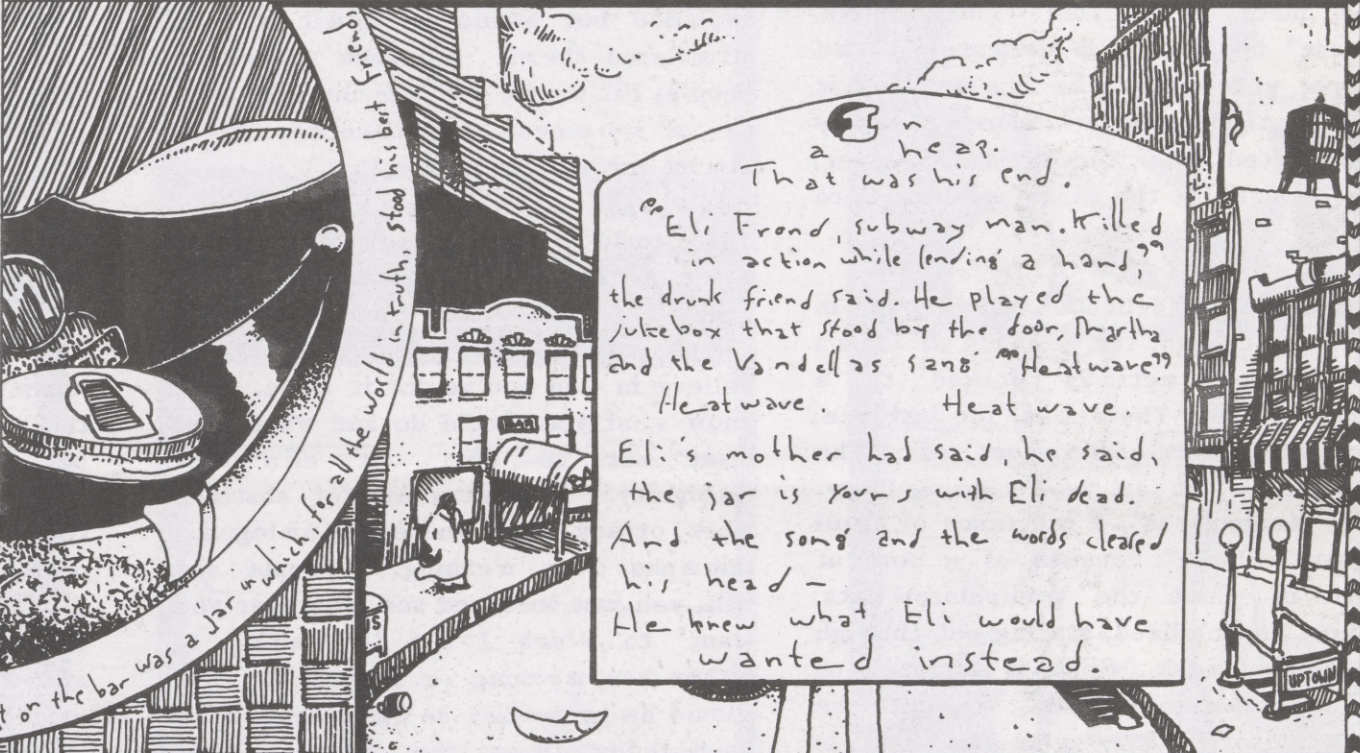 t on the bar was a jar in which, for all the world in truth, stood his best friend,
n
a heap.
That was his end.
"Eli Frond, subway man. Killed
in action while lending a hand,"
the drunk friend said. He played the
jukebox that stood by the door, Martha
and the Va dellas sang "Heatwave"
Heatwave Heatwave
Eli's mother had said, he said,
the jar is yours with Eli dead.
And the song and the words cleared
his head –
He knew what Eli would have
wanted instead.
BAR
UPTOWN